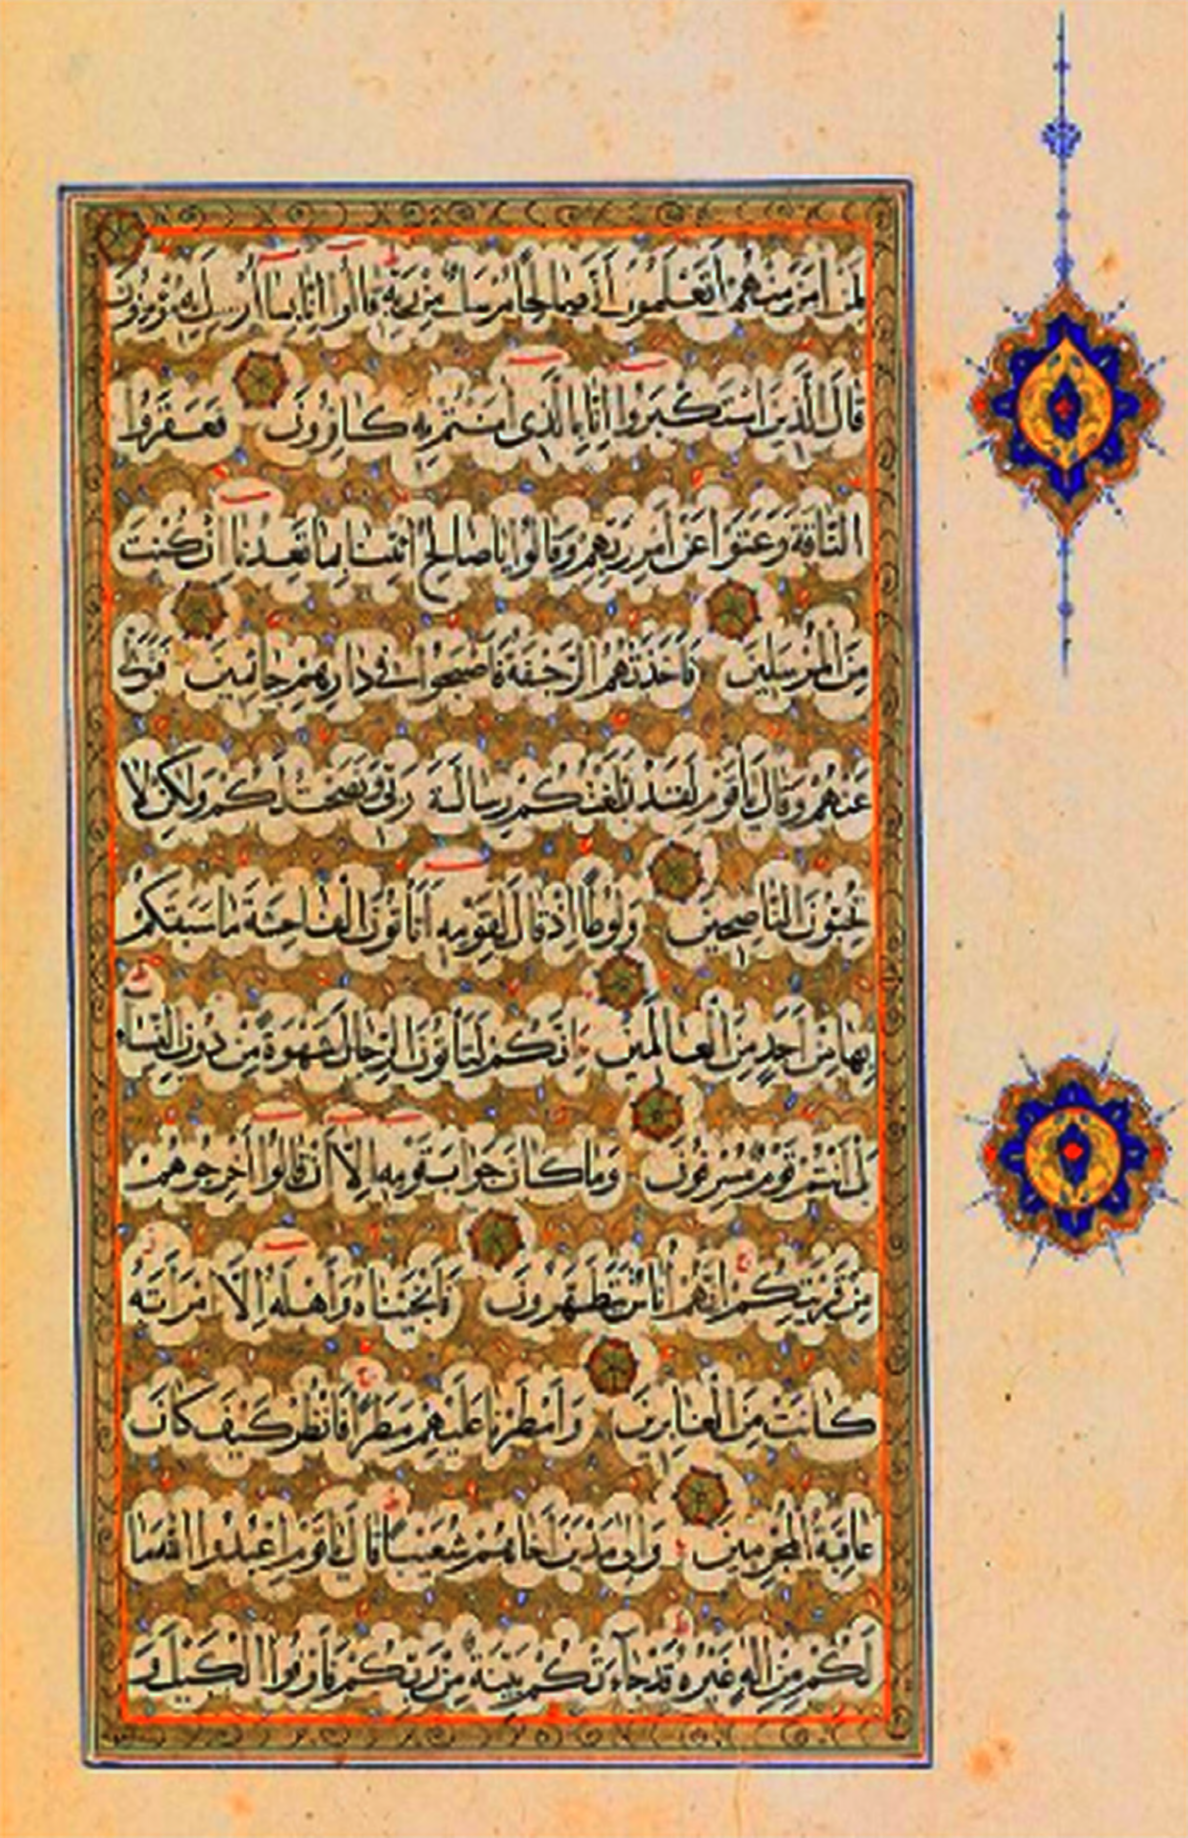 لِمَنْ اٰمَنَ مِنْهُمْ اَتَعْلَمُونَ اَنَّ صَالِحًا مُرْسَلٌ مِنْ رَبِّهِ قَالُوا اِنَّا بِمَا اُرْسِلَ بِهِ مُؤْمِنُونَ
قَالَ الَّذِينَ اسْتَكْبَرُوا اِنَّا بِالَّذِى اٰمَنْتُمْ بِهِ كَافِرُونَ فَعَقَرُوا
النَّاقَةَ وَعَتَوْا عَنْ اَمْرِ رَبِّهِمْ وَقَالُوا يَاصَالِحُ ائْتِنَا بِمَا تَعِدُنَا اِنْ كُنْتَ
مِنَ الْمُرْسَلِينَ فَاَخَذَتْهُمُ الرَّجْفَةُ فَاَصْبَحُوا فِى دَارِهِمْ جَاثِمِينَ فَتَوَلّٰى
عَنْهُمْ وَقَالَ يَاقَوْمِ لَقَدْ اَبْلَغْتُكُمْ رِسَالَةَ رَبِّى وَنَصَحْتُ لَكُمْ وَلٰكِنْ لَا
تُحِبُّونَ النَّاصِحِينَ وَلُوطًا اِذْ قَالَ لِقَوْمِهِ اَتَأْتُونَ الْفَاحِشَةَ مَا سَبَقَكُمْ
بِهَا مِنْ اَحَدٍ مِنَ الْعَالَمِينَ اِنَّكُمْ لَتَأْتُونَ الرِّجَالَ شَهْوَةً مِنْ دُونِ النِّسَاءِ
بَلْ اَنْتُمْ قَوْمٌ مُسْرِفُونَ وَمَا كَانَ جَوَابَ قَوْمِهِ اِلَّا اَنْ قَالُوا اَخْرِجُوهُمْ
مِنْ قَرْيَتِكُمْ اِنَّهُمْ اُنَاسٌ يَتَطَهَّرُونَ فَاَنْجَيْنَاهُ وَاَهْلَهُ اِلَّا امْرَاَتَهُ
كَانَتْ مِنَ الْغَابِرِينَ وَاَمْطَرْنَا عَلَيْهِمْ مَطَرًا فَانْظُرْ كَيْفَ كَانَ
عَاقِبَةُ الْمُجْرِمِينَ وَاِلٰى مَدْيَنَ اَخَاهُمْ شُعَيْبًا قَالَ يَاقَوْمِ اعْبُدُوا اللّٰهَ مَا
لَكُمْ مِنْ اِلٰهٍ غَيْرُهُ قَدْ جَاءَتْكُمْ بَيِّنَةٌ مِنْ رَبِّكُمْ فَاَوْفُوا الْكَيْلَ وَ